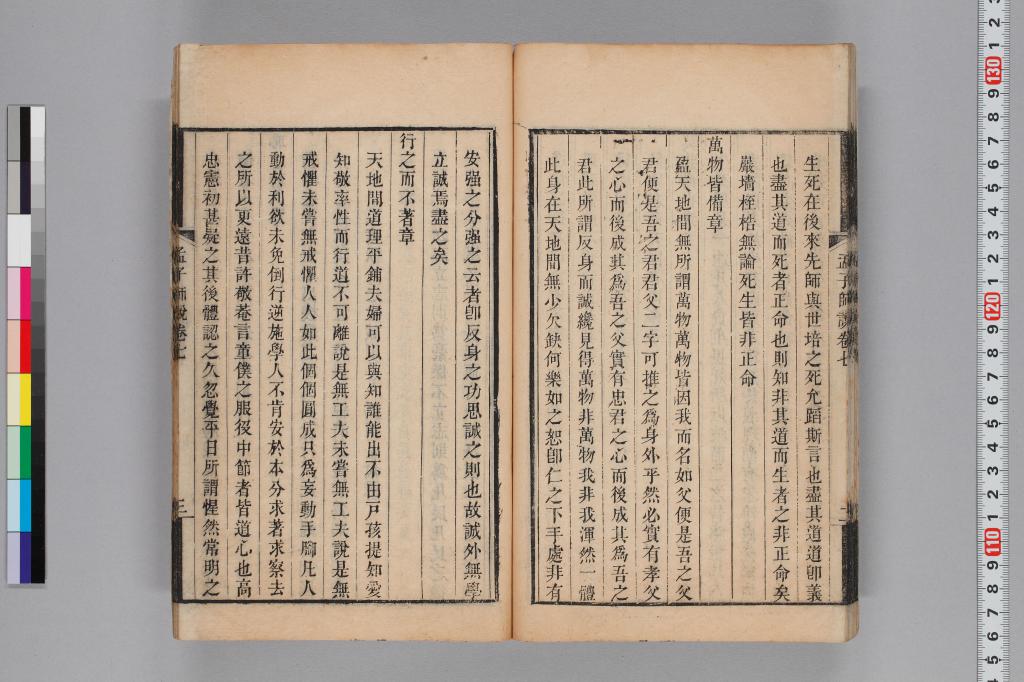 生死在後來先師與世培之死允蹈斯言也盡其道道卽義
也盡其道而死者正命也則知非其道而生者之非正命矣
巖墻桎梏無論死生皆非正命
萬物皆備章
盈天地間無所謂萬物萬物皆因我而名如父便是吾之父
君便是吾之君君父二字可推之爲身外乎然必實有孝父
之心而後成其爲吾之父實有忠君之心而後成其爲吾之
君此所謂反身而誠纔見得萬物非萬物我非我渾然一體
此身在天地間無少欠缺何樂如之恕卽仁之下手處非有
孟子師說卷七
二
安强之分强之云者卽反身之功思誠之則也故誠外無學
立誠焉盡之矣
行之而不著章
天地間道理平鋪夫婦可以與知誰能出不由戶孩提知愛
知敬率性而行道不可離說是無工夫未嘗無工夫說是無
戒懼未嘗無戒懼人人如此個個圓成只爲妄動手腳凡人
動於利欲未免倒行逆施學人不肯安於本分求著求察去
之所以更遠昔許敬菴言童僕之服役中節者皆道心也高
忠憲初甚疑之其後體認之久忽覺平日所謂惺然常明之
孟子師說卷七
三